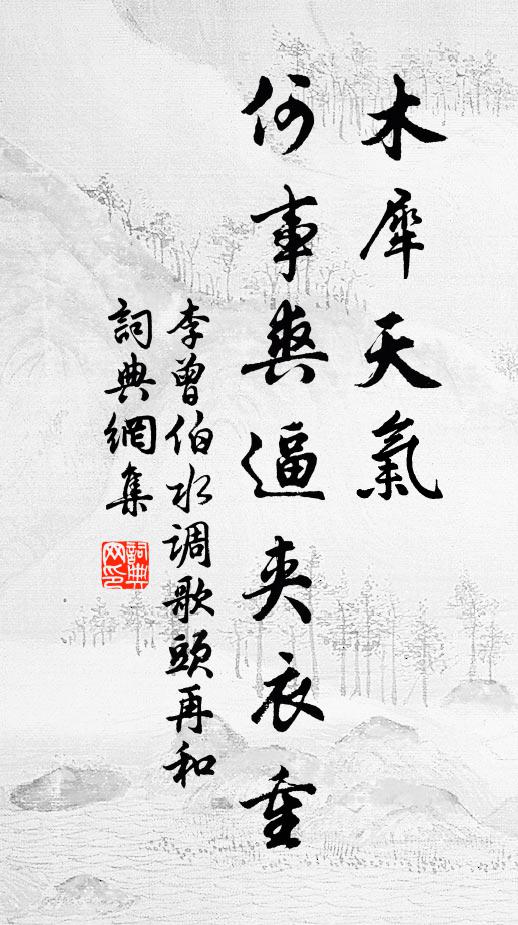 木犀天氣
何事爽逼夾衣重
李曾伯水调歌頭再和
詞典網集
詞典网印